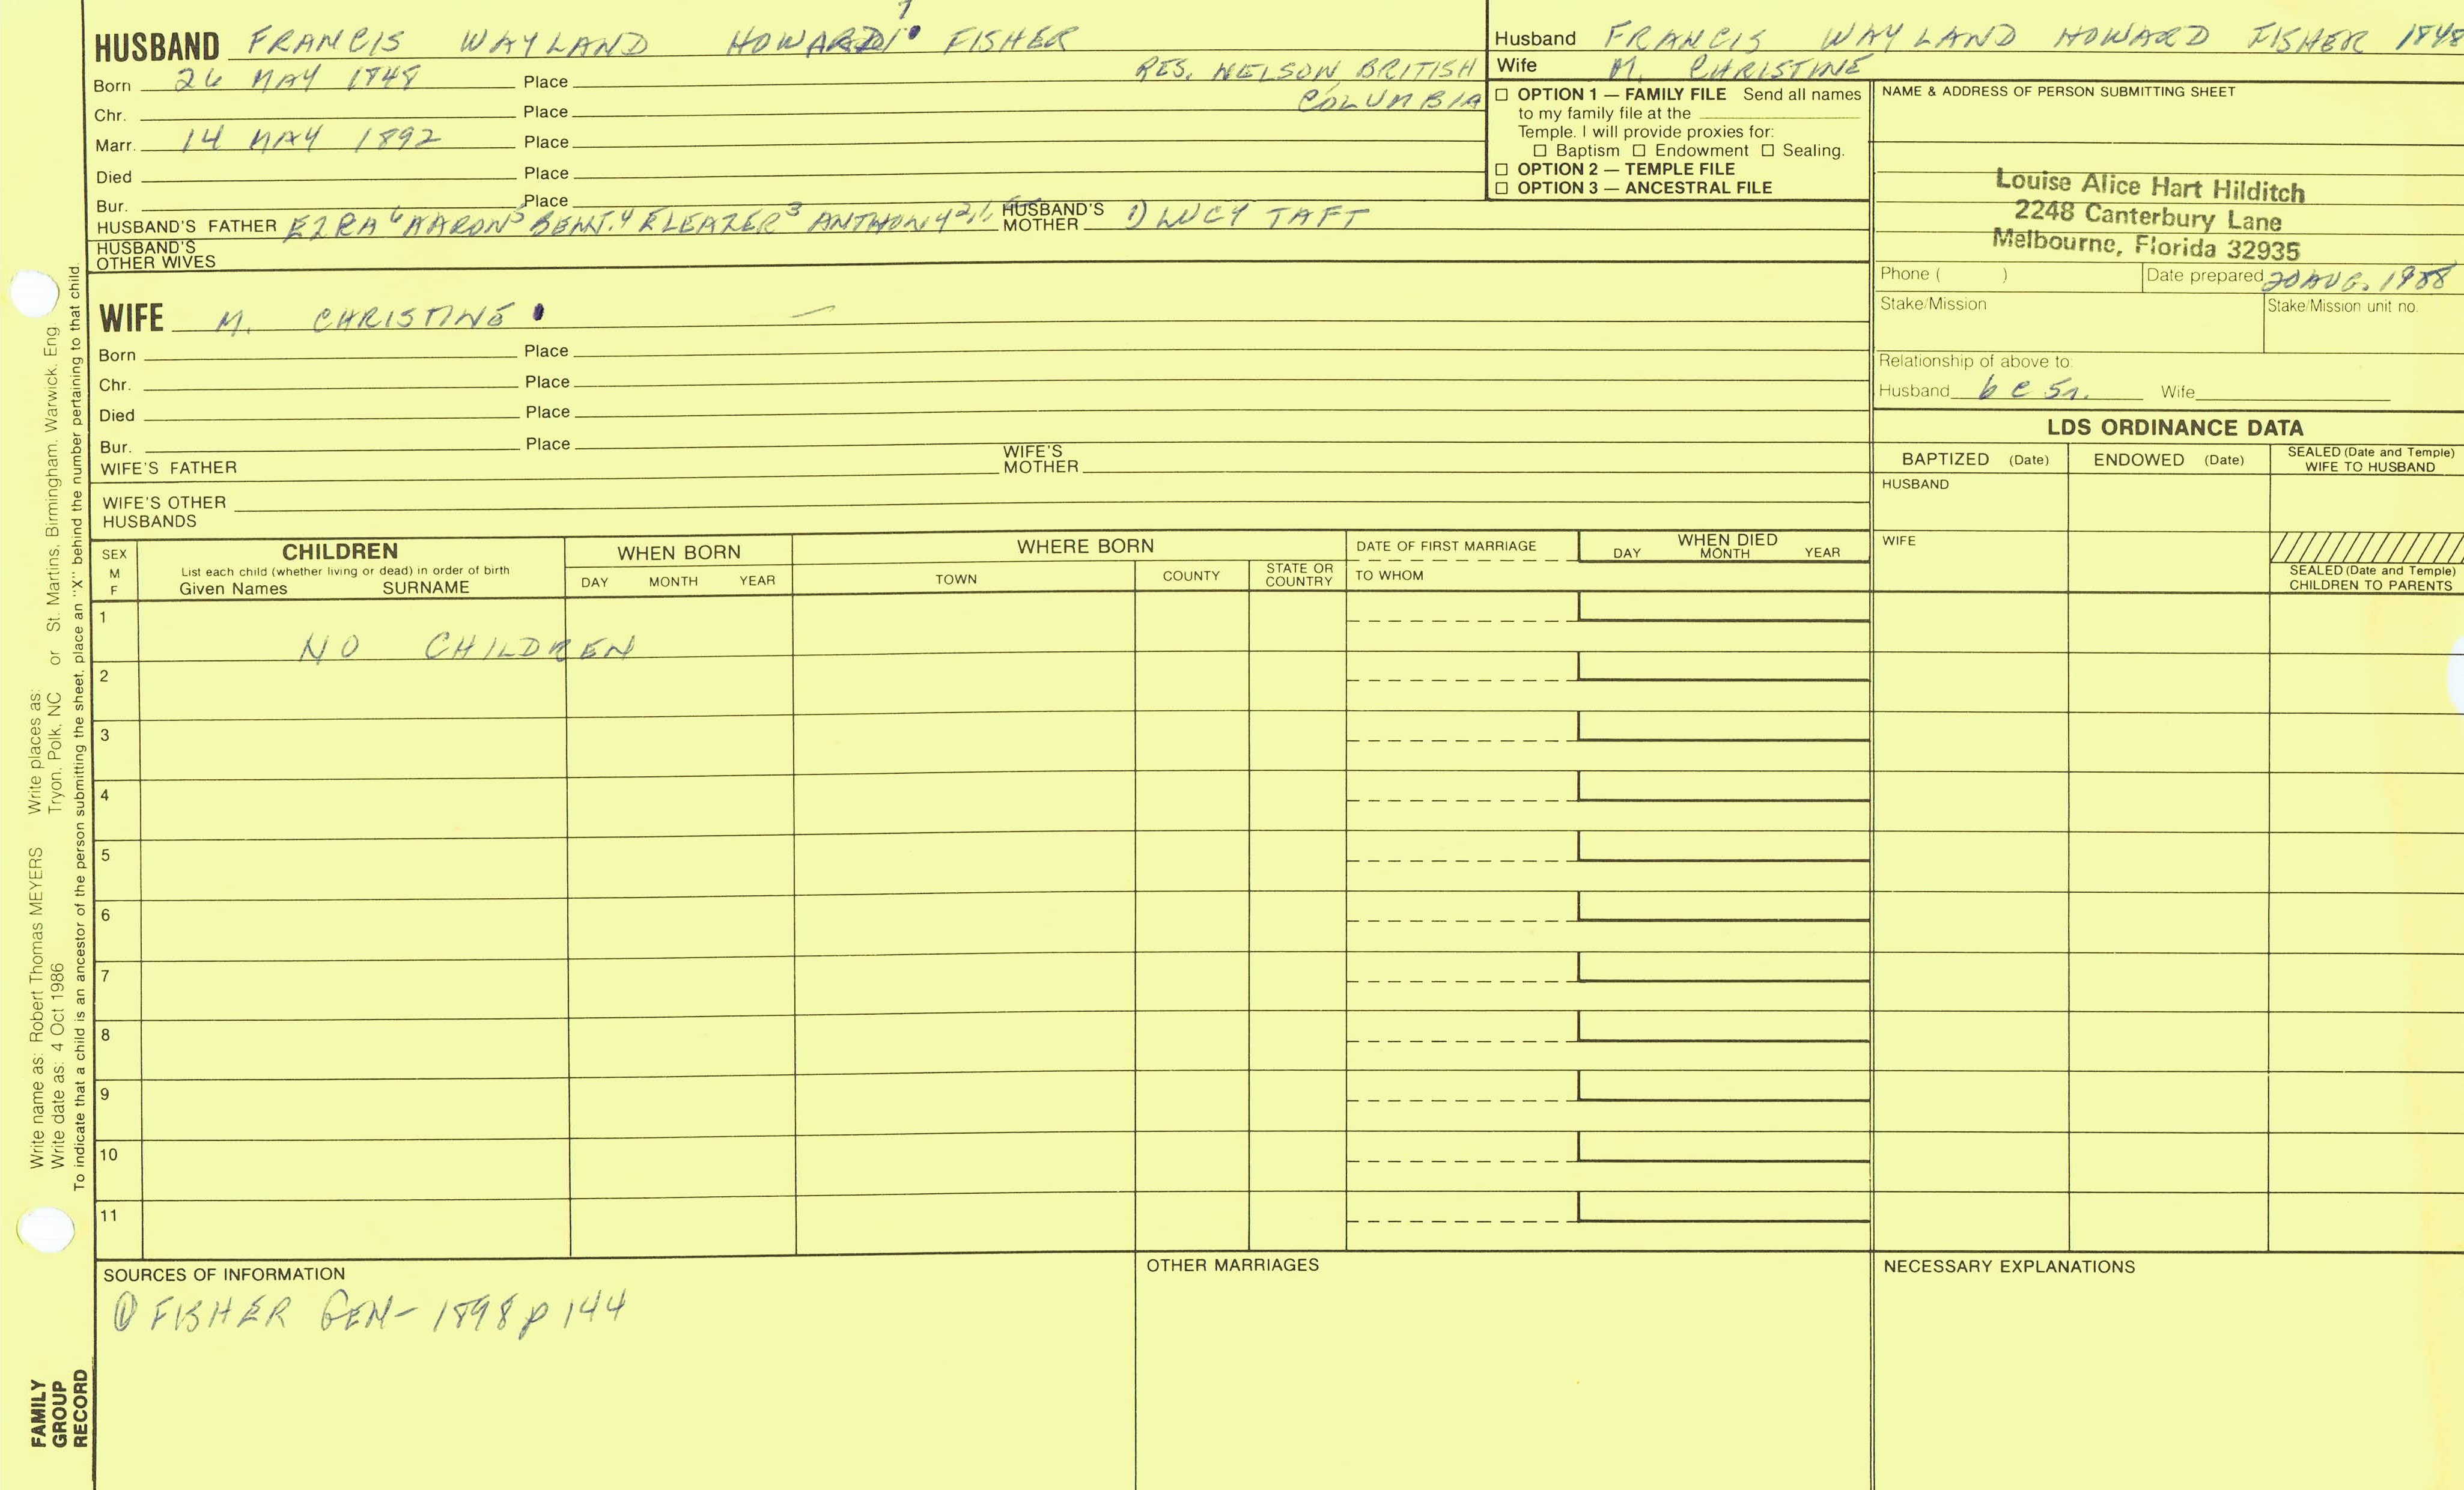 7
HUSBAND FRANCIS WAYLAND HOWARD FISHER
Born 26 MAY 1848 Place RES. NELSON, BRITISH
COLUMBIA
Chr. Place
Marr. 14 MAY 1892 Place
Died Place
Bur. Place
HUSBAND'S FATHER EZRA⁶ AARON⁵ BENJ.⁴ ELEAZER³ ANTHONY²,¹ HUSBAND'S MOTHER 1) LUCY TAFT
HUSBAND'S
OTHER WIVES
WIFE M. CHRISTINE —
Born Place
Chr. Place
Died Place
Bur. Place
WIFE'S FATHER WIFE'S MOTHER
WIFE'S OTHER
HUSBANDS
Husband FRANCIS WAYLAND HOWARD FISHER 1848
Wife M. CHRISTINE
☐ OPTION 1 — FAMILY FILE Send all names
to my family file at the
Temple. I will provide proxies for:
☐ Baptism ☐ Endowment ☐ Sealing.
☐ OPTION 2 — TEMPLE FILE
☐ OPTION 3 — ANCESTRAL FILE
NAME & ADDRESS OF PERSON SUBMITTING SHEET
Louise Alice Hart Hilditch
2248 Canterbury Lane
Melbourne, Florida 32935
Phone ( ) Date prepared 20 AUG. 1988
Stake/Mission Stake/Mission unit no.
Relationship of above to:
Husband 6 C 5r. Wife
LDS ORDINANCE DATA
BAPTIZED (Date) ENDOWED (Date) SEALED (Date and Temple)
WIFE TO HUSBAND
HUSBAND
WIFE
SEALED (Date and Temple)
CHILDREN TO PARENTS
SEX
M
F
CHILDREN
List each child (whether living or dead) in order of birth
Given Names SURNAME
WHEN BORN
DAY MONTH YEAR
WHERE BORN
TOWN COUNTY STATE OR
COUNTRY
DATE OF FIRST MARRIAGE
TO WHOM
WHEN DIED
DAY MONTH YEAR
1
NO CHILDREN
2
3
4
5
6
7
8
9
10
11
SOURCES OF INFORMATION
① FISHER GEN- 1898 p 144
OTHER MARRIAGES
NECESSARY EXPLANATIONS
Write name as: Robert Thomas MEYERS Write places as:
Write date as: 4 Oct 1986 Tryon, Polk, NC or St. Martins, Birmingham, Warwick, Eng
To indicate that a child is an ancestor of the person submitting the sheet, place an "X" behind the number pertaining to that child.
FAMILY
GROUP
RECORD